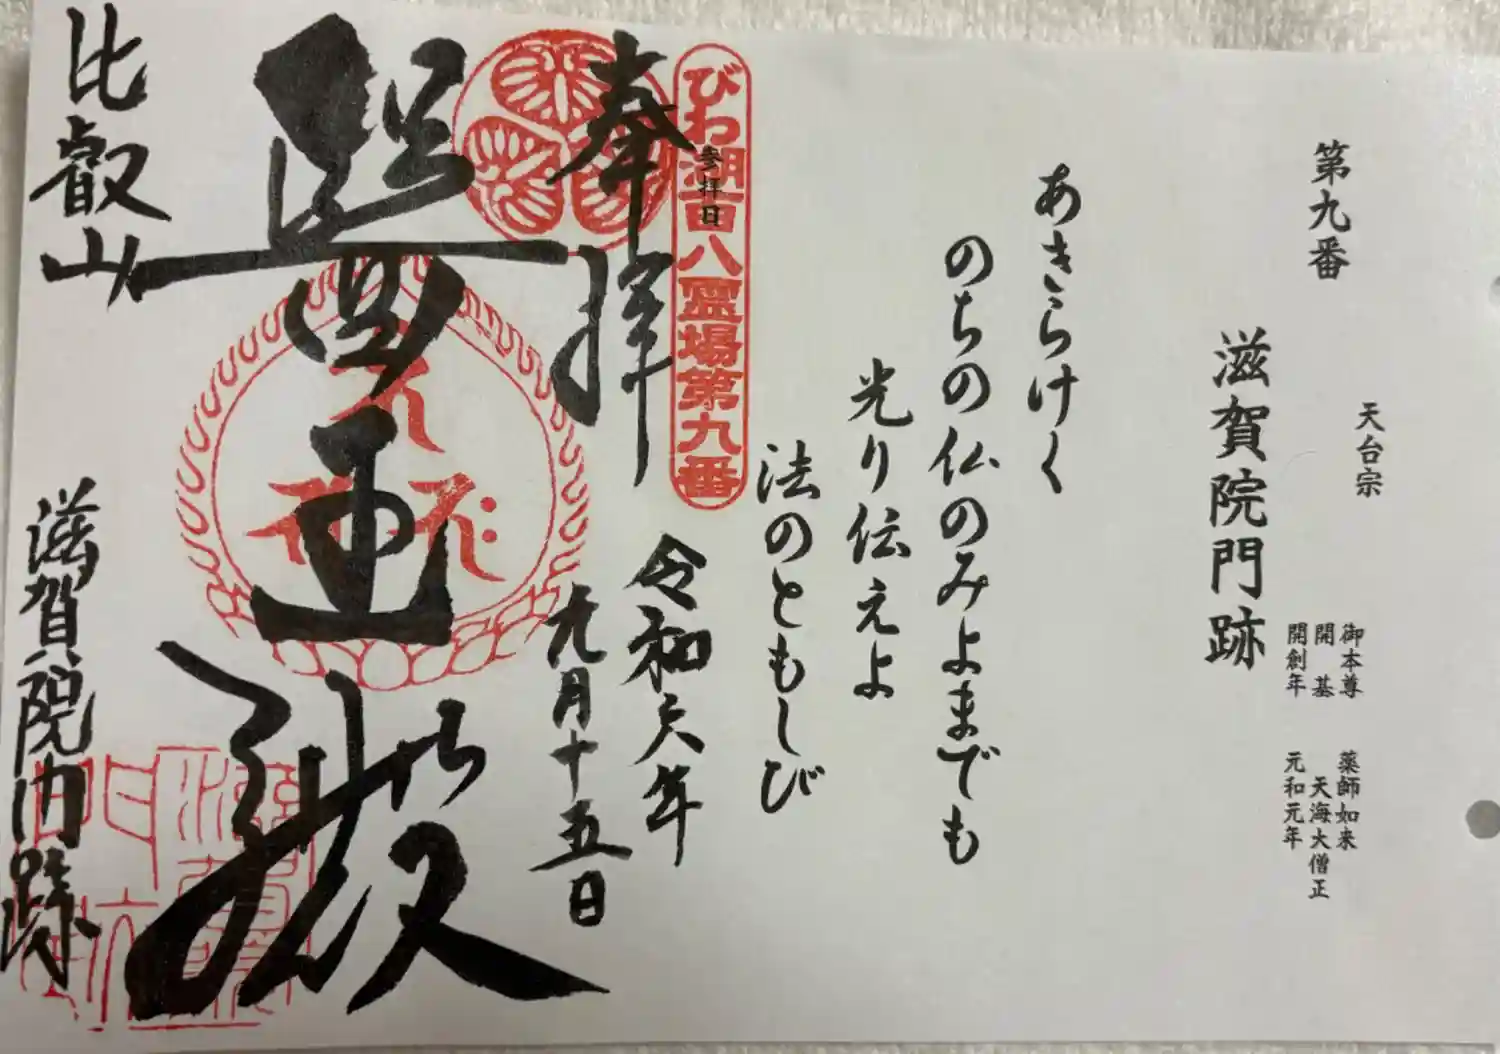 第九番
天台宗
滋賀院門跡
御本尊 薬師如来
開基 天海大僧正
開創年 元和元年
あきらけく
のちの仏のみよまでも
光り伝えよ
法のともしび
びわ湖百八霊場第九番
参拝日
令和六年
九月十五日
奉拝
醫王殿
比叡山
滋賀院門跡